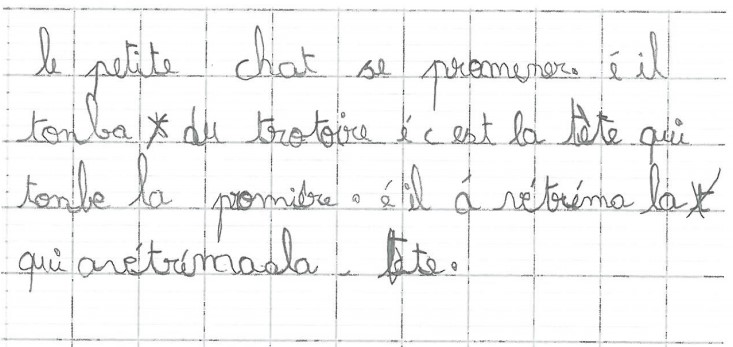 le petite chat se promener. é il
tonba * du trotoire é c est la tête qui
tonbe la promière. é il á rétréma la *
qui arétrémaala tête.